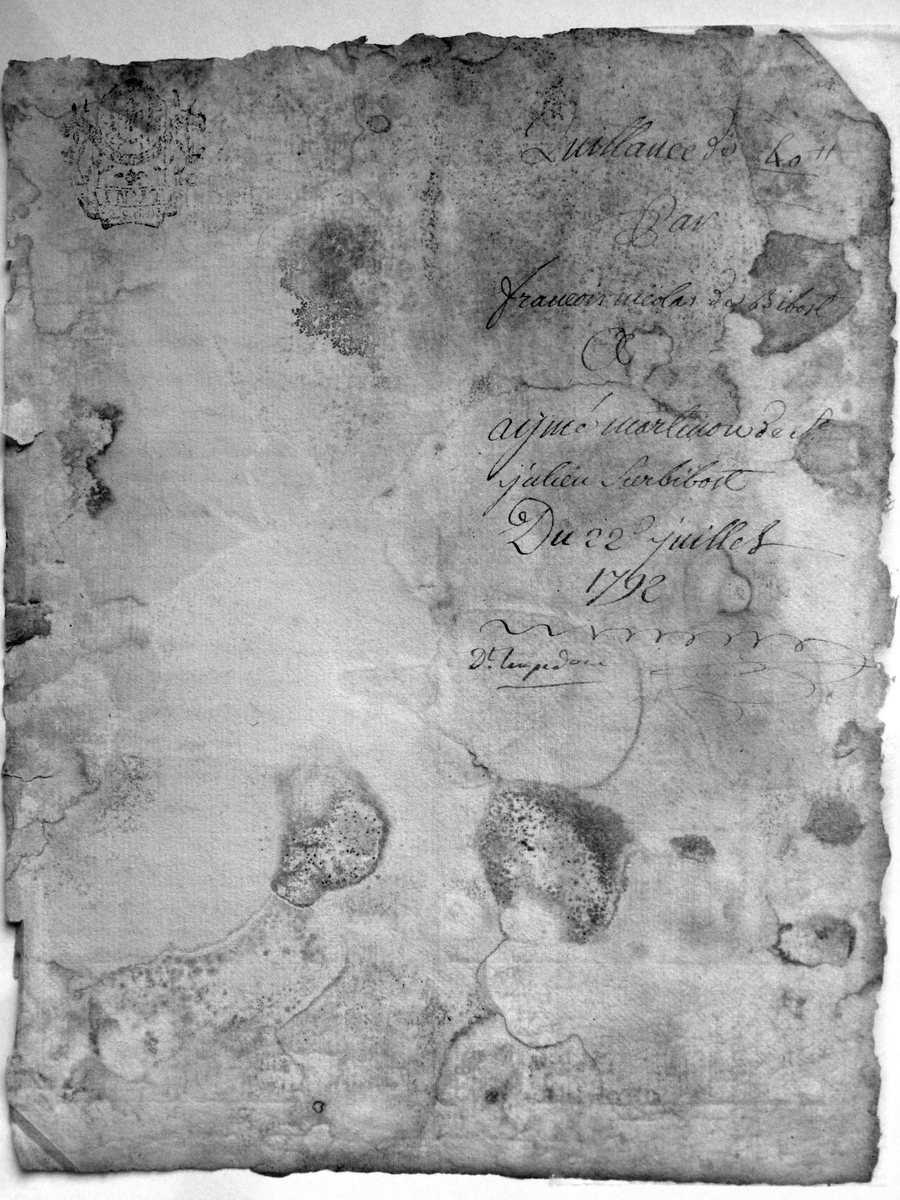 Quillance de 40 ₶
Par
françois nicolas de Bibost
&
aymé martinou de St
julien Surbibost
Du 22e juillet
1792